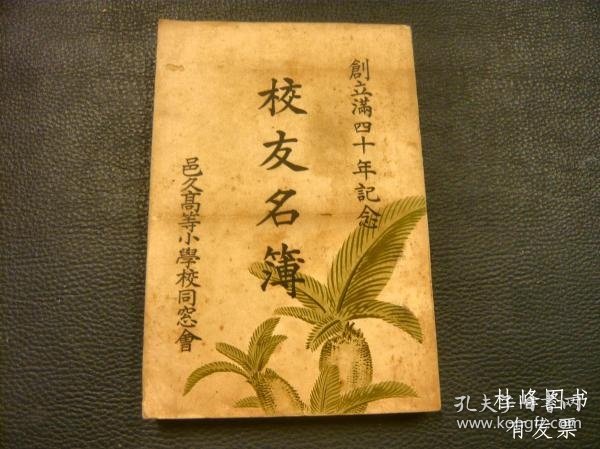 創立滿四十年記念
校友名簿
邑久高等小學校同窓會
杜峰图书
www.kongfz.com
有发票